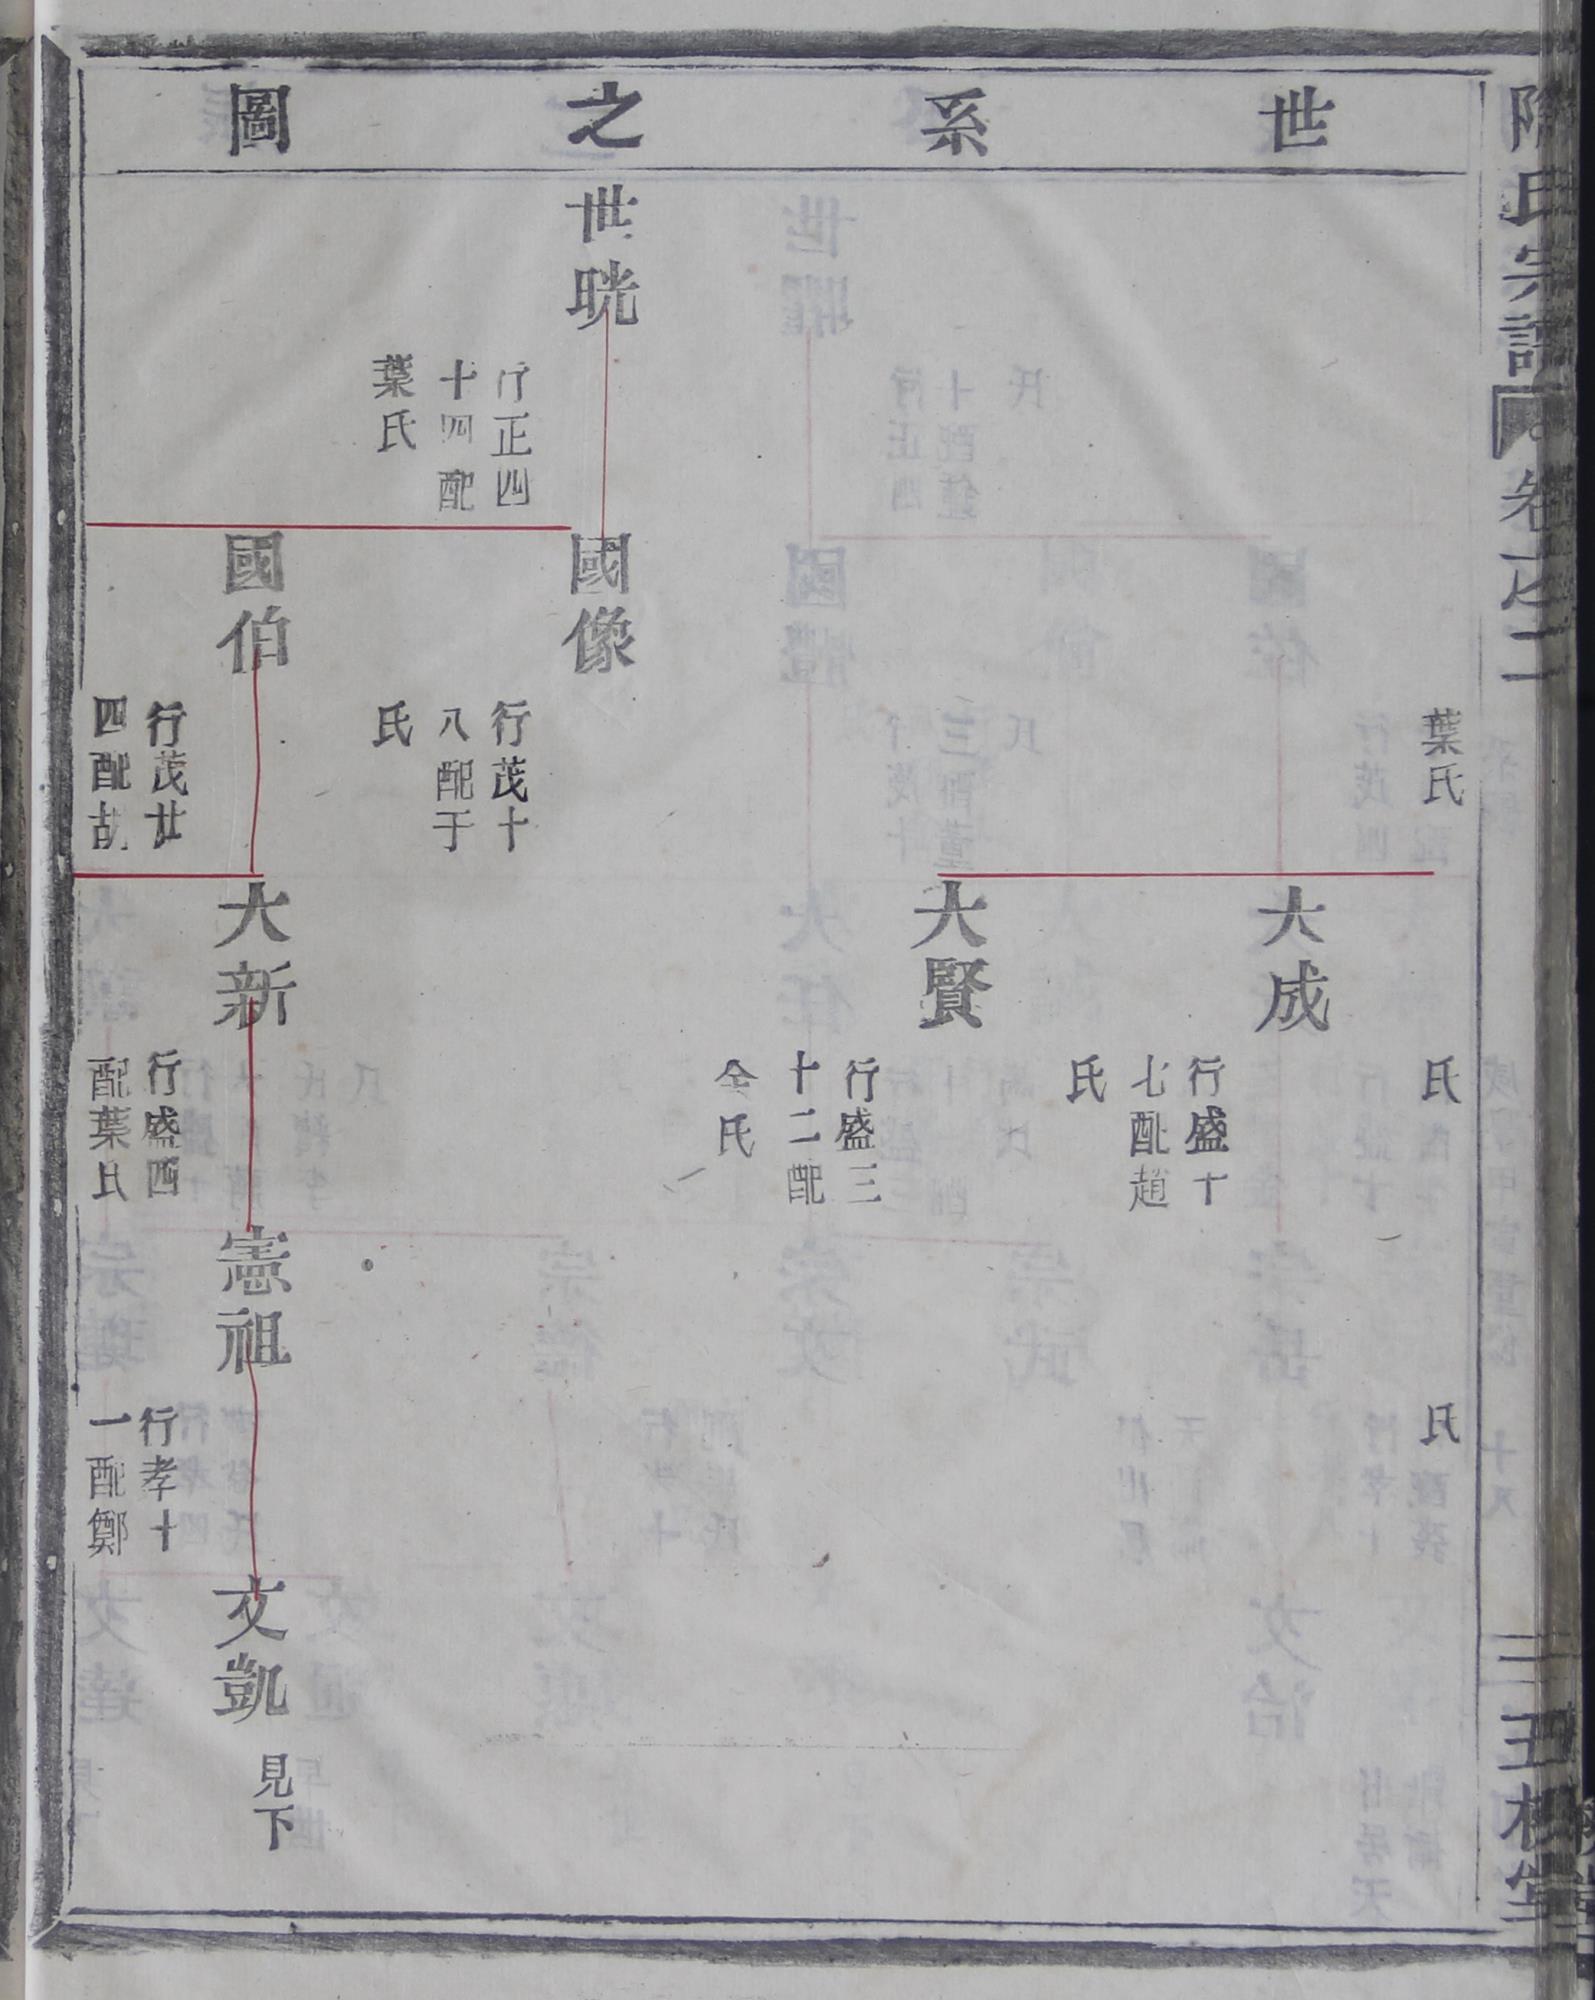 世系之圖
葉氏
氏
氏
大成
行盛十
七配趙
氏
大賢
行盛三
十二配
仝氏
世晄
行正四
十四配
葉氏
國像
行茂十
八配于
氏
國伯
行茂廿
四配胡
大新
行盛四
配葉氏
憲祖
行孝十
一配鄭
文凱
見下
氏宗譜
卷之二